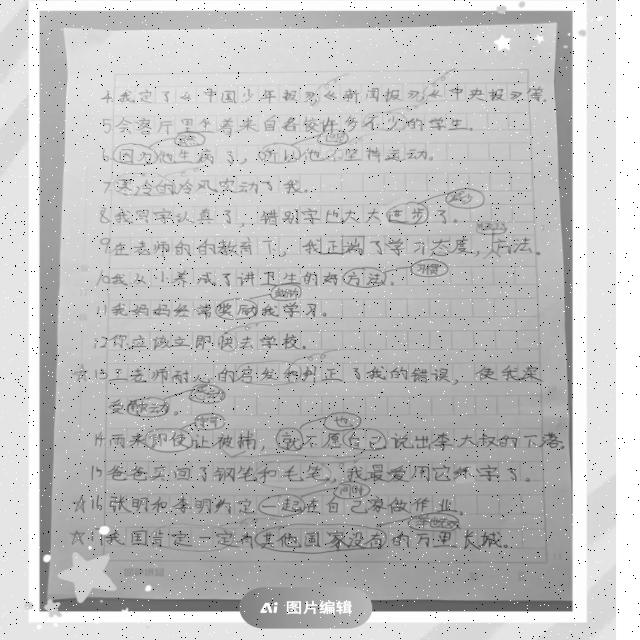 4我定了《中国少年报》《新闻报》《中央报》等
5会客厅里坐着来自各校许多不少的学生.
6因为他生病了,所以他坚持运动.
7寒冷的冷风实动了我.
8我写字认真了,错别字大大进步了.
9在老师的的教育下,我正确了学习态度,方法.
10我从小养成了讲卫生的好方法.
习惯
11我妈妈经常奖励我学习.
鼓励
12你应该立即快去学校.
☆13王老师耐心的启发和纠正了我的错误,使我深
受
14雨来即使让被捕,就不愿自己说出李大叔的下落.
也
15爸爸买回了钢笔和毛笔,我最爱用它练字了.
☆16张明和李明约定一起在自己家做作业.
同时
☆17我国肯定一定有其他国家没有的万里长城.
Ai 图片编辑